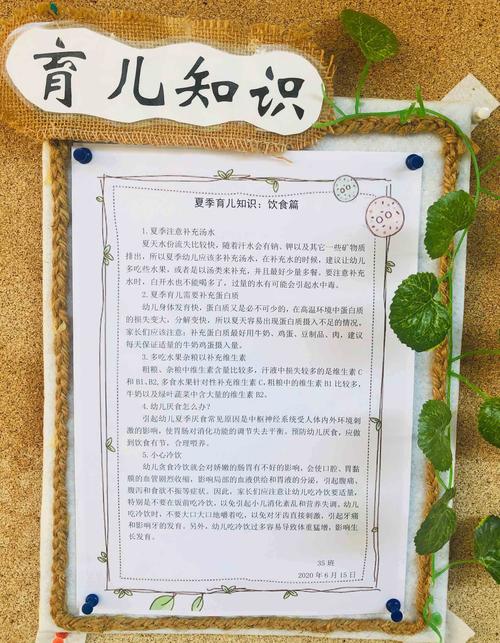 育儿知识
夏季育儿知识：饮食篇
1.夏季注意补充汤水
夏天水份流失比较快，随着汗水会有钠、钾以及其它一些矿物质
排出，所以夏季幼儿应该多补充汤水。在补充水的时候，建议让幼儿
多吃些水果，或者是以汤类来补充，并且最好少量多餐。要注意补充
水时，白开水也不能喝多了，过量的水有可能会引起水中毒。
2.夏季育儿需要补充蛋白质
幼儿身体发育快，蛋白质又是必不可少的，在高温环境中蛋白质
的损失变大，分解变快，所以夏天容易出现蛋白质摄入不足的情况。
家长们应该注意：补充蛋白质最好用牛奶、鸡蛋、豆制品、肉，建议
每天保证适量的牛奶鸡蛋摄入量。
3.多吃水果杂粮以补充维生素
粗粮、杂粮中维生素含量比较多，汗液中损失较多的是维生素C
和B1、B2。多食水果针对性补充维生素C，粗粮中的维生素B1比较多，
牛奶以及绿叶蔬菜中含大量的维生素B2。
4.幼儿厌食怎么办？
引起幼儿夏季厌食常见原因是中枢神经系统受人体内外环境刺
激的影响，使胃肠对消化功能的调节失去平衡。预防幼儿厌食，应做
到饮食有节、合理喂养。
5.小心冷饮
幼儿贪食冷饮就会对娇嫩的肠胃有不好的影响，会使口腔、胃黏
膜的血管剧烈收缩，影响局部的血液供给和胃液的分泌，引起腹痛、
腹泻和食欲不振等症状。因此，家长们应注意让幼儿吃冷饮要适量，
特别是不要在饭前吃冷饮，以免引起小儿消化紊乱和营养失调。幼儿
吃冷饮时，不要大口大口地嚼着吃，以免对牙齿直接刺激，引起牙痛
和影响牙的发育。另外，幼儿吃冷饮过多容易导致体重猛增，影响生
长发育。
35班
2020年6月15日